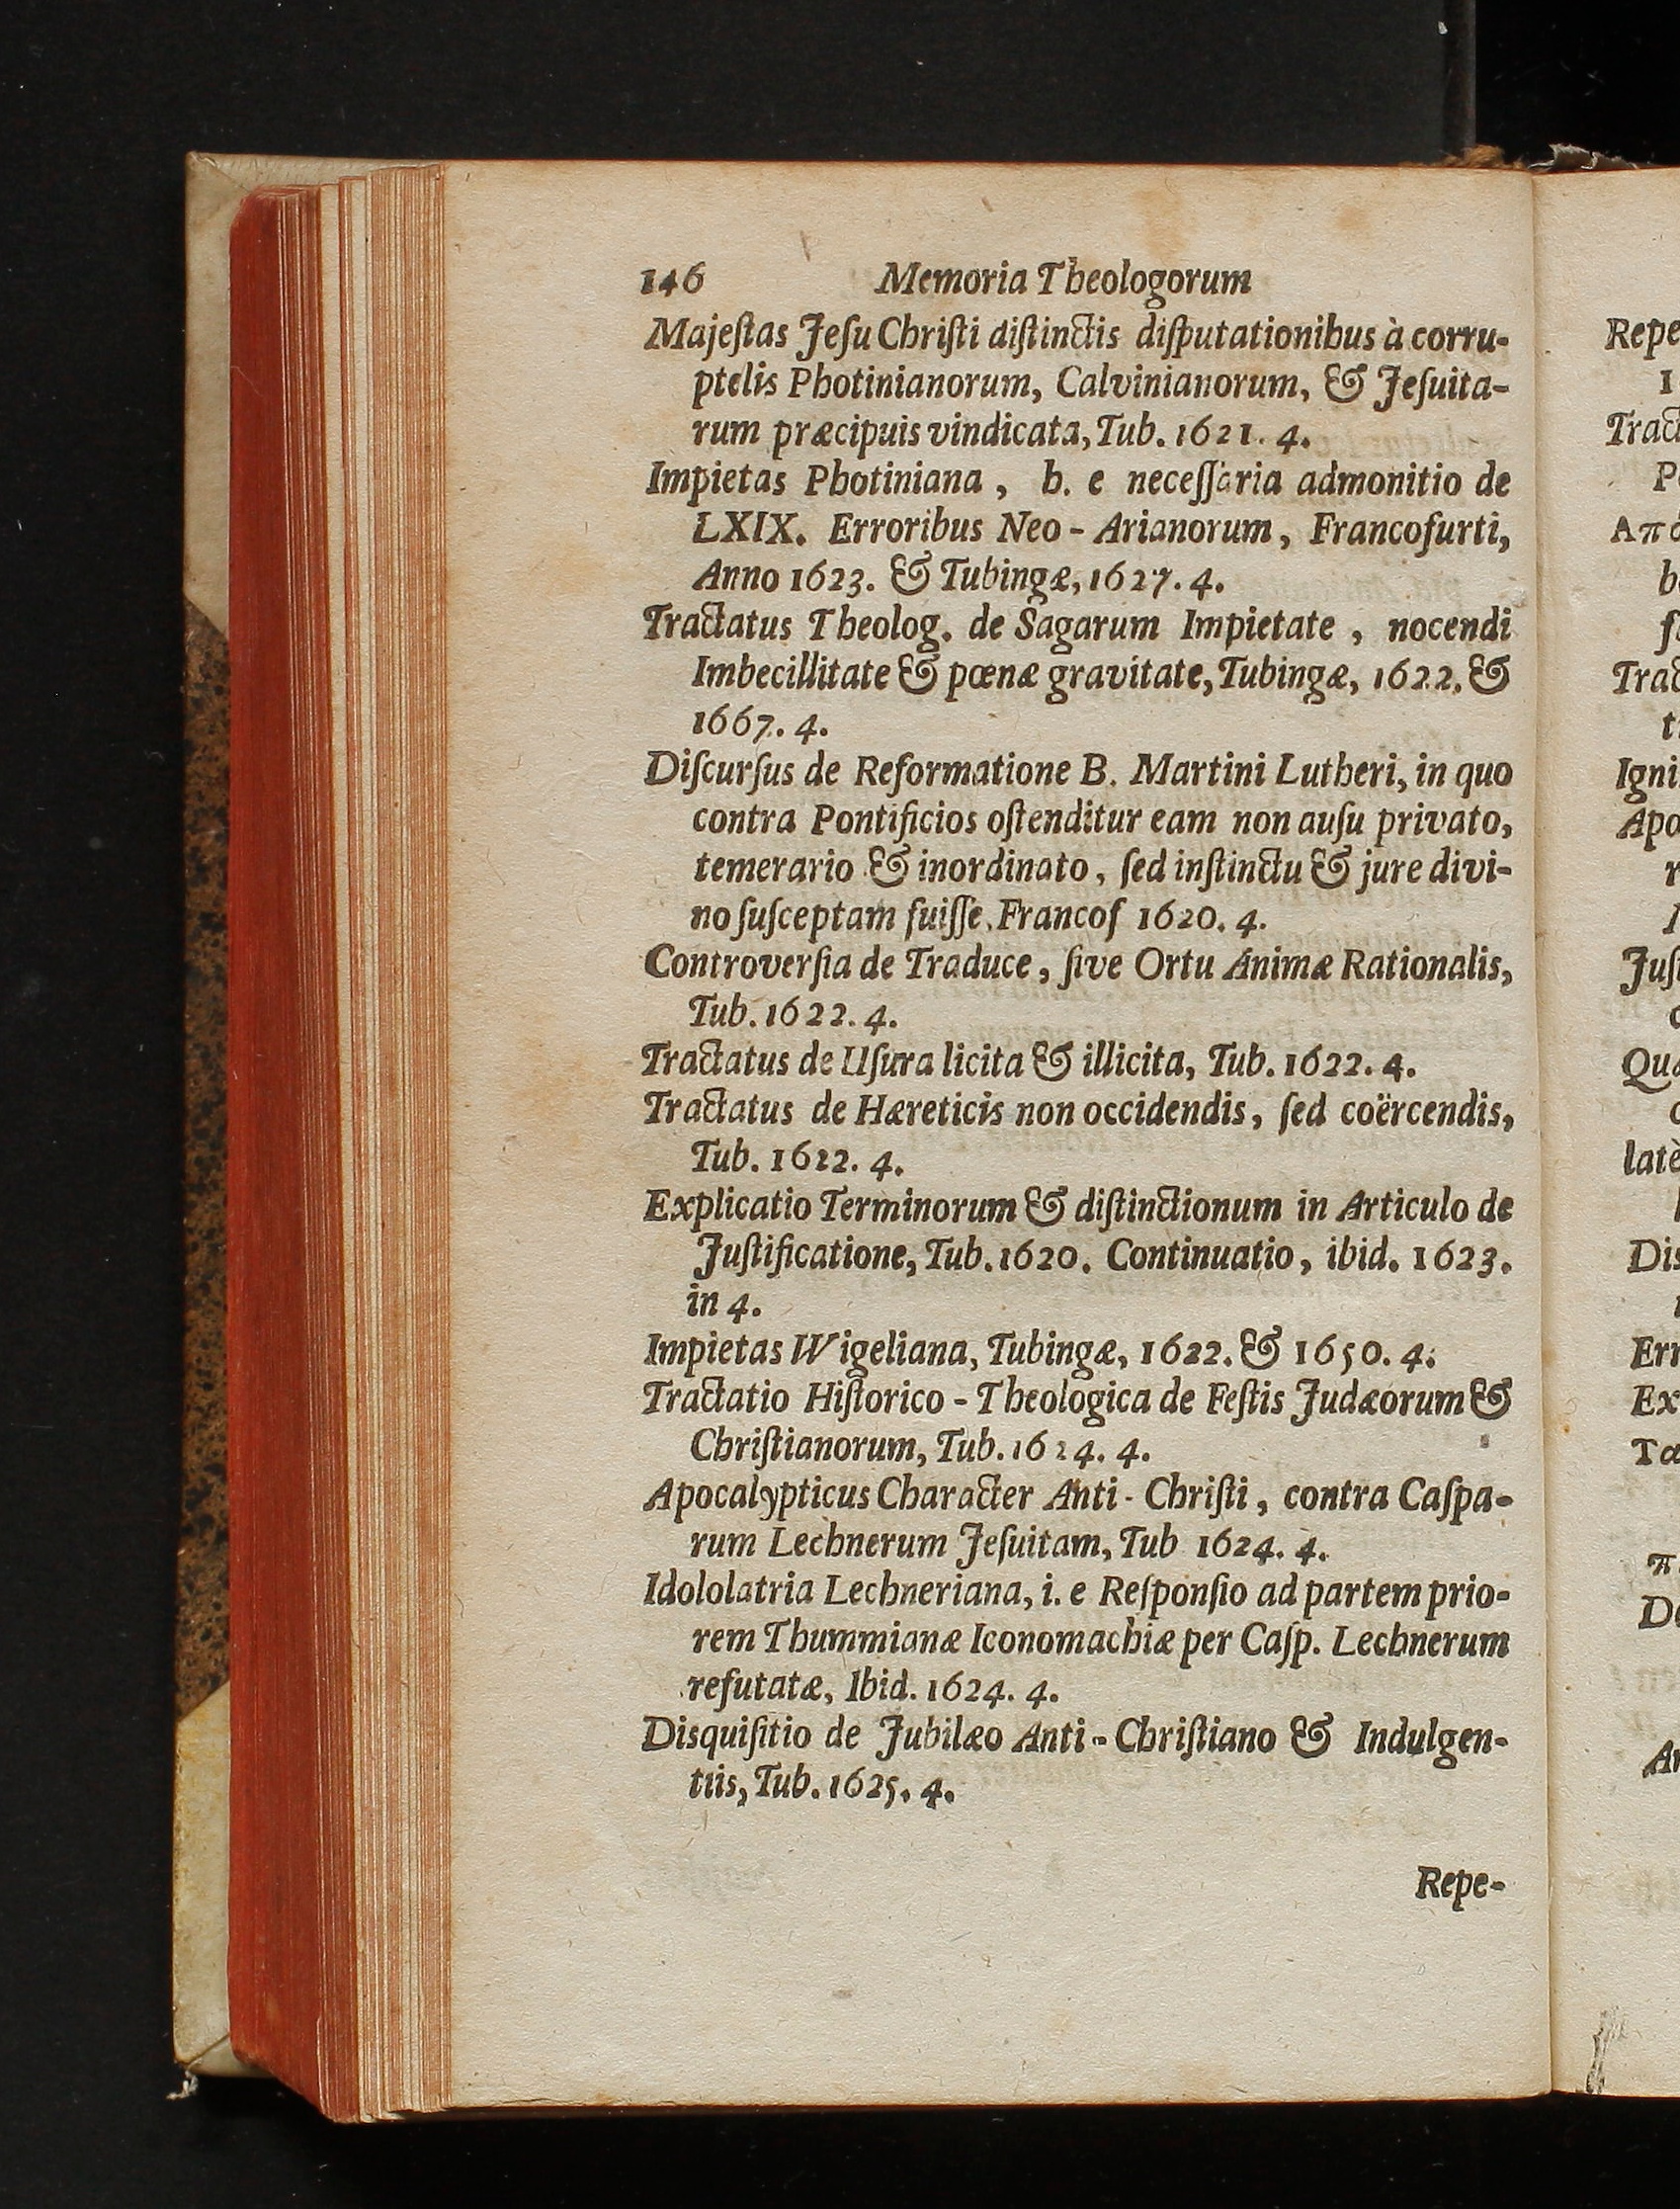 146 Memoria Theologorum
Majeſtas Jeſu Chriſti diſtinctis diſputationibus à corru-
ptelis Photinianorum, Calvinianorum, & Jeſuita-
rum præcipuis vindicata, Tub. 1621. 4.
Impietas Photiniana, h. e neceſſaria admonitio de
LXIX. Erroribus Neo-Arianorum, Francofurti,
Anno 1623. & Tubingæ, 1627. 4.
Tractatus Theolog. de Sagarum Impietate, nocendi
Imbecillitate & pœnæ gravitate, Tubingæ, 1622, &
1667. 4.
Diſcurſus de Reformatione B. Martini Lutheri, in quo
contra Pontificios oſtenditur eam non auſu privato,
temerario & inordinato, ſed inſtinctu & jure divi-
no ſuſceptam fuiſſe, Francof 1620. 4.
Controverſia de Traduce, ſive Ortu Animæ Rationalis,
Tub. 1622. 4.
Tractatus de Uſura licita & illicita, Tub. 1622. 4.
Tractatus de Hæreticis non occidendis, ſed coërcendis,
Tub. 1622. 4.
Explicatio Terminorum & diſtinctionum in Articulo de
Juſtificatione, Tub. 1620. Continuatio, ibid. 1623.
in 4.
Impietas Wigeliana, Tubingæ, 1622. & 1650. 4.
Tractatio Hiſtorico-Theologica de Feſtis Judæorum &
Chriſtianorum, Tub. 1624. 4.
Apocalypticus Character Anti-Chriſti, contra Caſpa-
rum Lechnerum Jeſuitam, Tub 1624. 4.
Idololatria Lechneriana, i. e Reſponſio ad partem prio-
rem Thummianæ Iconomachiæ per Caſp. Lechnerum
refutatæ, Ibid. 1624. 4.
Disquiſitio de Jubilæo Anti-Chriſtiano & Indulgen-
tiis, Tub. 1625. 4.
Repe-